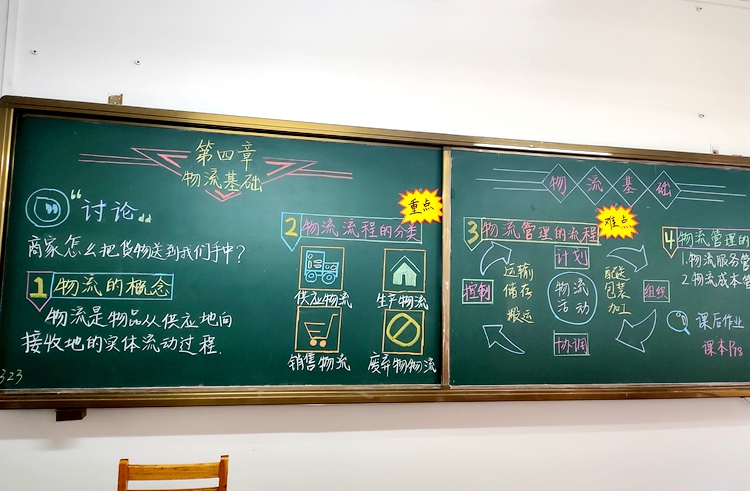 第四章
物流基础
讨论
商家怎么把货物送到我们手中?
1 物流的概念
物流是物品从供应地向
接收地的实体流动过程.
323
2 物流流程的分类
重点
供应物流
生产物流
销售物流
废弃物物流
物流基础
3 物流管理的流程
难点
计划
控制
运输
储存
搬运
物流
活动
配送
包装
加工
组织
协调
4 物流管理的
1.物流服务管
2.物流成本管
课后作业
课本P73